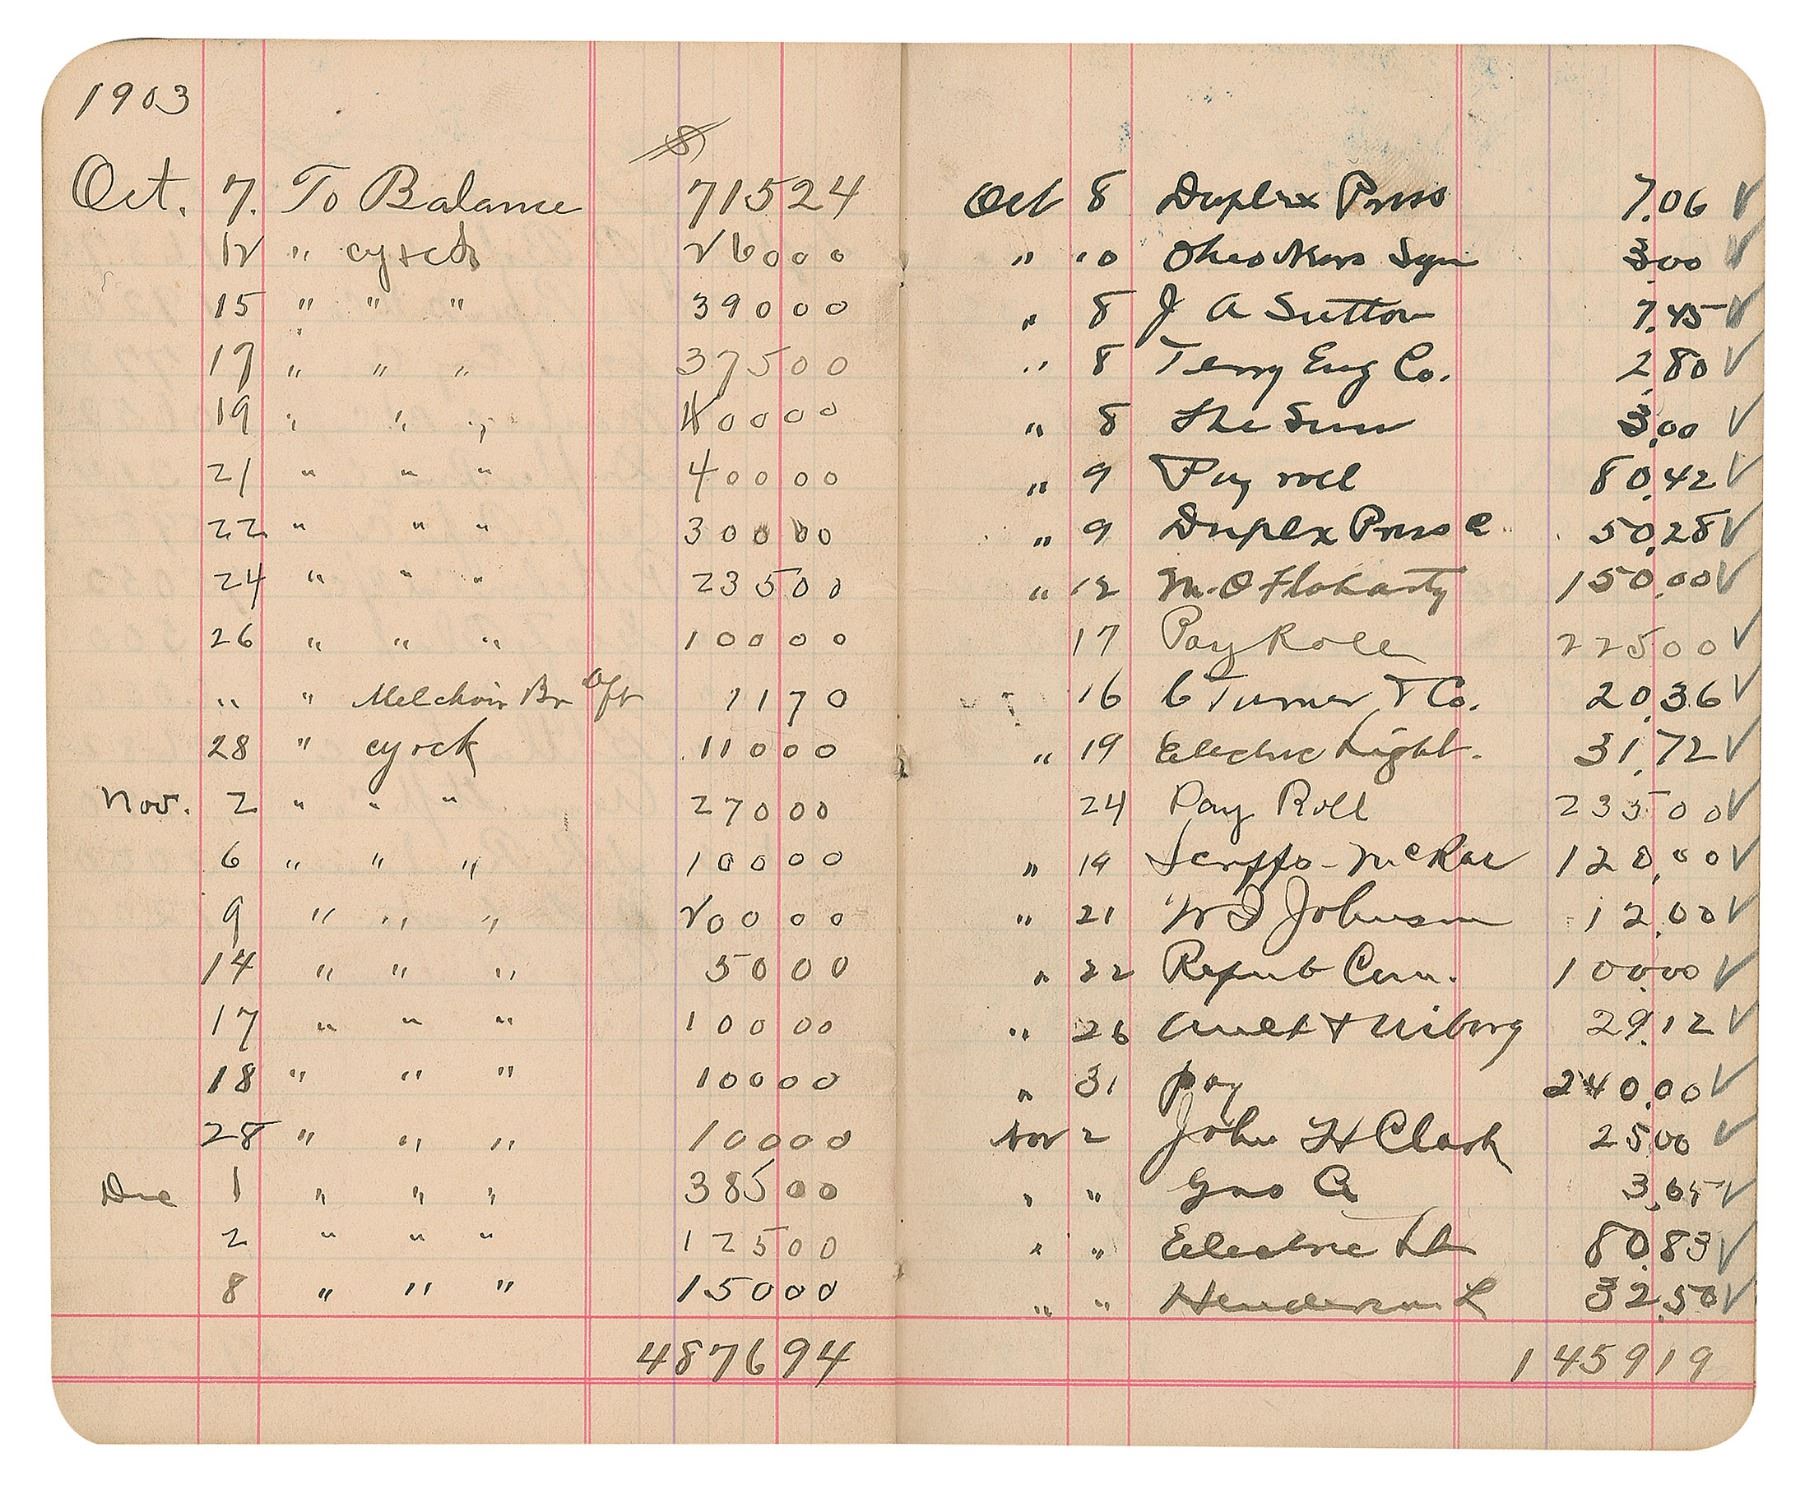 1903
$
Oct. 7. To Balance 71524
12 " cy & cds 26000
15 " " " 39000
17 " " " 37500
19 " " " 40000
21 " " " 40000
22 " " " 30000
24 " " " 23500
26 " " " 10000
" " Melchoir Br Dft 1170
28 " cy & ck 11000
Nov. 2 " " " 27000
6 " " " 10000
9 " " " 20000
14 " " " 5000
17 " " " 10000
18 " " " 10000
28 " " " 10000
Dec 1 " " " 38500
2 " " " 12500
8 " " " 15000
487694
Oct 8 Duplex Press 7.06 ✓
" 10 Ohio News Syn 3.00 ✓
" 8 J A Sutton 7.45 ✓
" 8 Terry Eng Co. 2.80 ✓
" 8 The Sun 3.00 ✓
" 9 Pay roll 80.42 ✓
" 9 Duplex Press C 50.28 ✓
" 12 M. O Floharty 150.00 ✓
17 Pay Roll 22500 ✓
16 C Turner & Co. 20.36 ✓
" 19 Electric Light. 31.72 ✓
24 Pay Roll 23500 ✓
" 19 Scripps-McRae 120.00 ✓
" 21 Johnson 12.00 ✓
" 22 Repub Com. 10.00 ✓
" 26 Ault & Wiborg 29.12 ✓
" 31 Pay 240.00 ✓
Nov 2 John H Clark 25.00 ✓
" " Gas Co 3.65 ✓
" " Electric Lt 80.83 ✓
" " Henderson L 32.50 ✓
145919